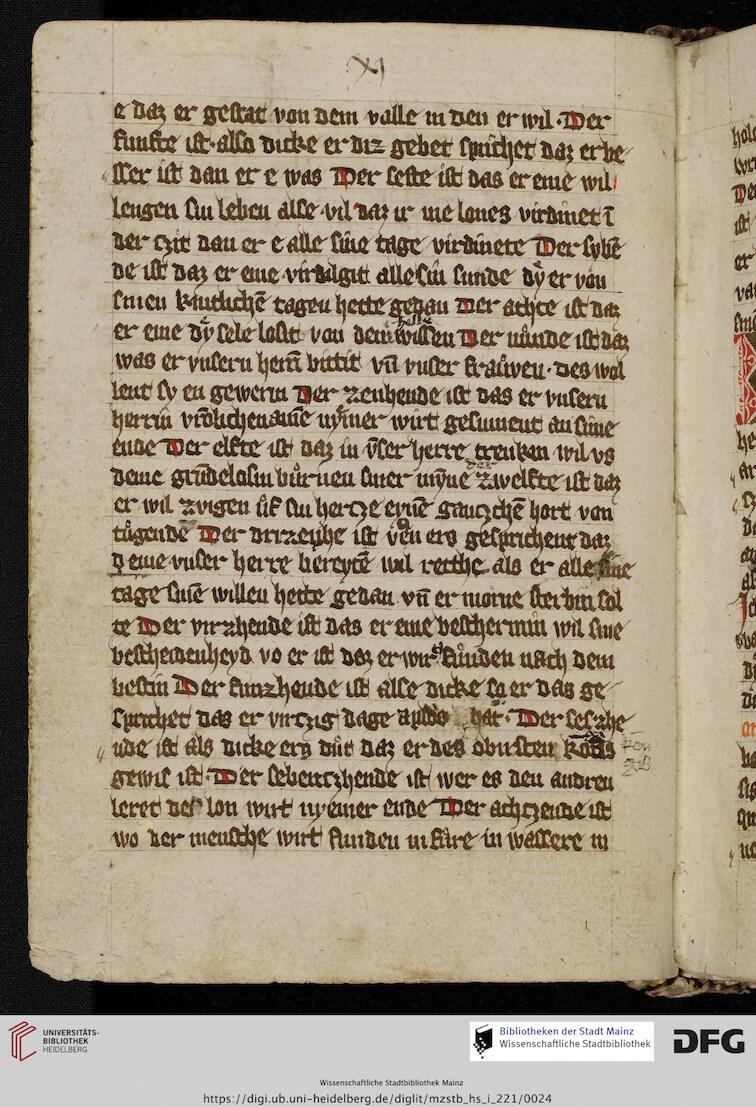 XI
e daz er gestat von dem valle in den er wil · Der
funfte ist · also dicke er diz gebet sprichet daz er be
sser ist dan er e was Der seste ist das er eme wil
lengen sin leben alse vil daz ir me lones virdinet ī
der czit dan er e alle sine tage virdinete Der sybē
de ist daz er eme virdilgit alle sin sunde dy er von
sinen kintlichē tagen hette gedan Der achte ist daz
er eme dy sele losit von dem wissen Der nůnde ist daz
was er vnsern herrē bittit vn̄ vnser frauwen · des wol
lent sy en gewerin Der zenhende ist das er vnsern
herrin vrolichen nymer wirt gesument an sime
ende Der elfte ist daz in vs̄er herre trenken wil vs
deme grūdelosin bůrnen siner myn̄e der zwelfte ist daz
er wil zvigen ůf sin hertze eynē gantzchē hort von
tůgende Der drizenhe ist gesprichent daz
eme vnser herre bereytē wil rechte als er alle sine
tage sinē willen hette gedan vn̄ er morne sterbin sol
te Der virzhende ist das er eme beschermin wil sine
bescheidenheyd vo er ist daz er wirt fůnden nach dem
bestin Der funzhende ist alse dicke so er das ge
sprichet das er virtzig dage aplas hat · Der seszhe
nde ist als dicke ers důt daz er des obirsten
gewis ist · Der sebentzhende ist wer es den andren
leret des lon wirt nyemer ende Der achtzende ist
wo der mensche wirt funden in fůre in wassere in
UNIVERSITÄTS-
BIBLIOTHEK
HEIDELBERG
Bibliotheken der Stadt Mainz
Wissenschaftliche Stadtbibliothek
DFG
Wissenschaftliche Stadtbibliothek Mainz
https://digi.ub.uni-heidelberg.de/diglit/mzstb_hs_i_221/0024